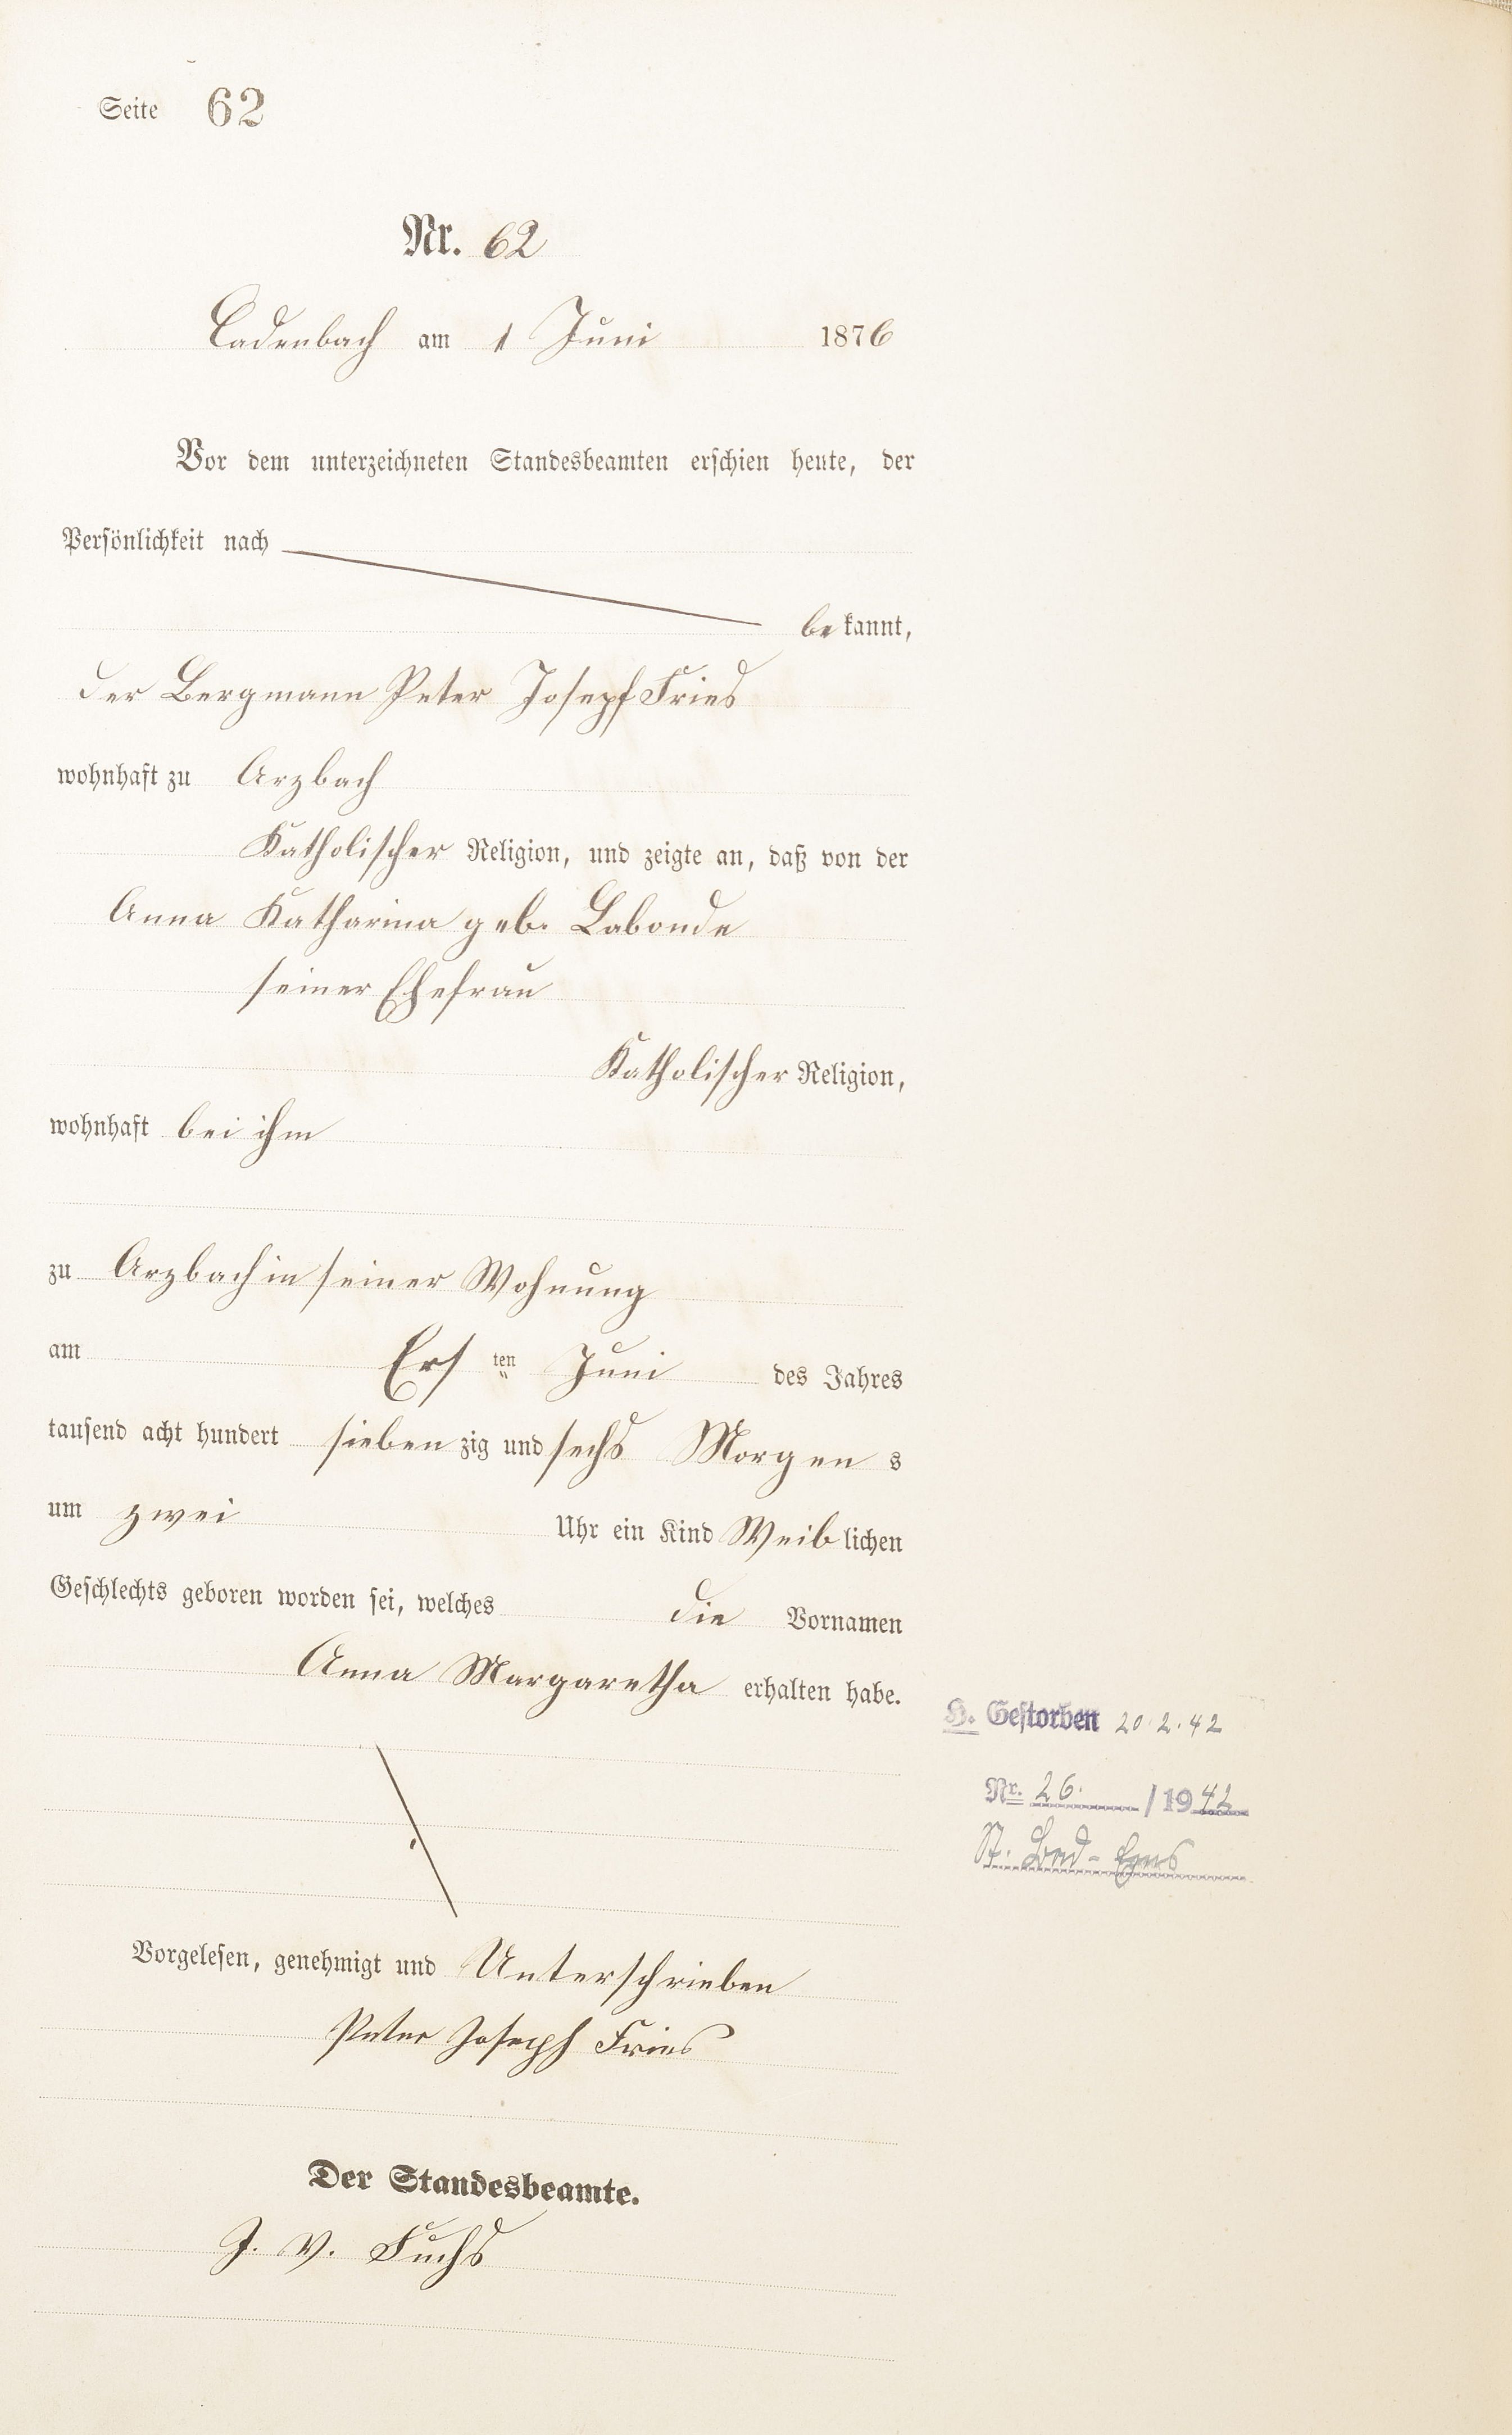 Seite 62
Nr. 62
Cadenbach am 1 Juni 1876
Vor dem unterzeichneten Standesbeamten erschien heute, der
Persönlichkeit nach
bekannt,
der Bergmann Peter Josepf Fries
wohnhaft zu Arzbach
Katholischer Religion, und zeigte an, daß von der
Anna Katharina geb. Labonde
seiner Ehefrau
Katholischer Religion,
wohnhaft bei ihm
zu Arzbach in seiner Wohnung
am Ersten Juni des Jahres
tausend acht hundert siebenzig und sechs Morgens
um zwei Uhr ein Kind Weiblichen
Geschlechts geboren worden sei, welches die Vornamen
Anna Margaretha erhalten habe.
H. Gestorben 20.2.42
Nr. 26. /1942
St. Bad-Ems
Vorgelesen, genehmigt und Unterschrieben
Peter Joseph Fries
Der Standesbeamte.
J. V. Fuchs